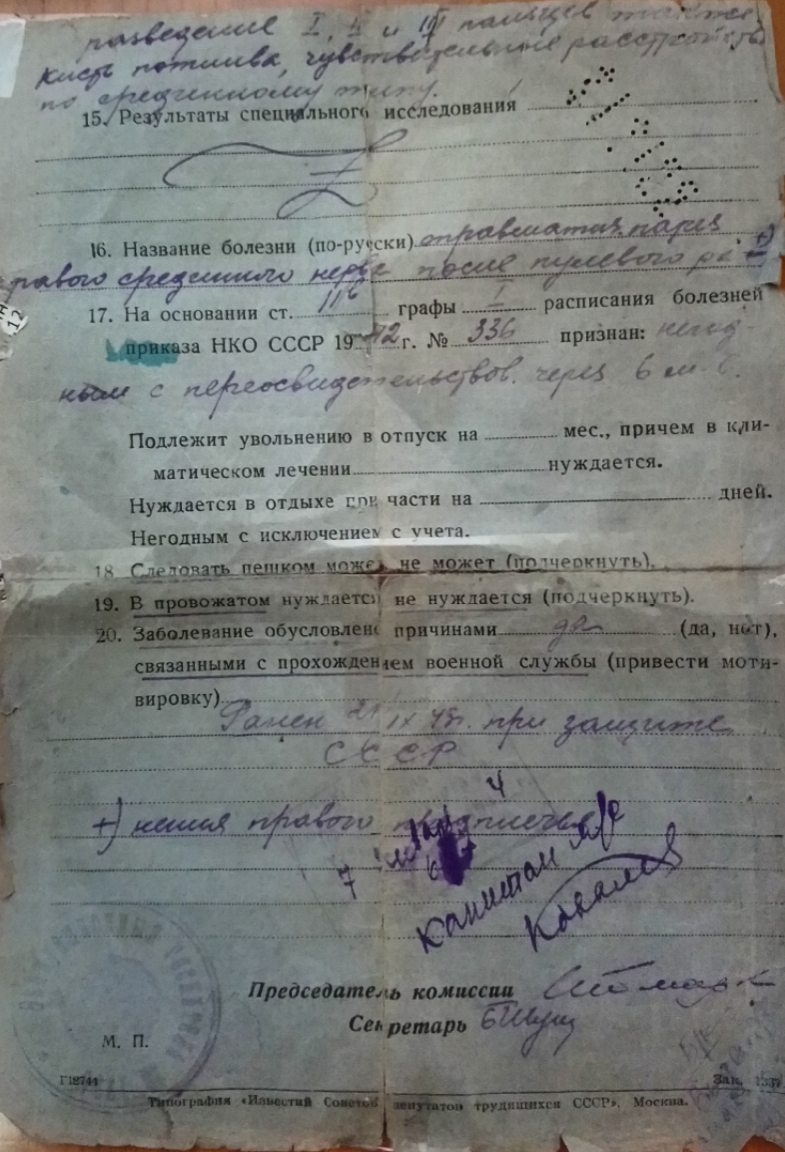 разведение I, II и III пальцев также
кисть потлива, чувствительные расстройств
по срединному типу.
15. Результаты специального исследования
16. Название болезни (по-русски) травматич. парез
правого срединного нерва после пулевого ра +)
17. На основании ст. 11б графы I расписания болезней
приказа НКО СССР 1942 г. № 336 признан: негод-
ным с переосвидетельствов. через 6 м-в.
Подлежит увольнению в отпуск на мес., причем в кли-
матическом лечении нуждается.
Нуждается в отдыхе при части на дней.
Негодным с исключением с учета.
18. Следовать пешком может, не может (подчеркнуть).
19. В провожатом нуждается, не нуждается (подчеркнуть).
20. Заболевание обусловлено причинами да (да, нет),
связанными с прохождением военной службы (привести моти-
вировку)
Ранен IX при защите
СССР
+) нения правого предплечья
7
4
Капитан м/с
Ковалев
Председатель комиссии
Секретарь
М. П.
Г18744
Зак. 1337
Типография «Известий Советов депутатов трудящихся СССР», Москва.